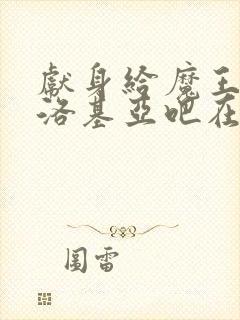 獻身給魔王
洛基亞吧在
圖雷